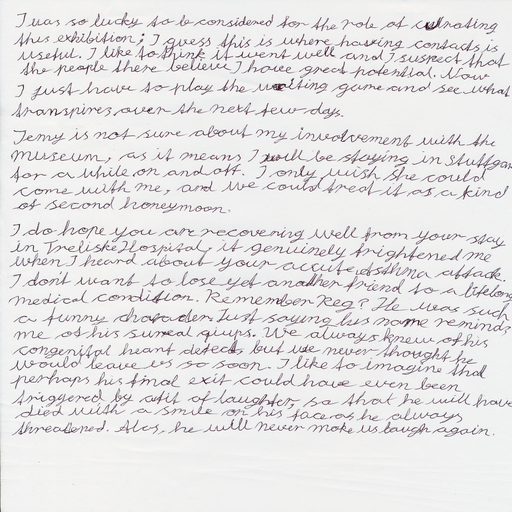 I was so lucky to be considered for the role of curating
this exhibition; I guess this is where having contacts is
useful. I like to think it went well and I suspect that
the people there believe I have great potential. Now
I just have to play the waiting game and see what
transpires over the next few days.
Temy is not sure about my involvement with the
museum, as it means I will be staying in Stuttgart
for a while on and off. I only wish she could
come with me, and we could treat it as a kind
of second honeymoon.
I do hope you are recovering well from your stay
in Treliske Hospital, it genuinely frightened me
when I heard about your accute asthma attack.
I don't want to lose yet another friend to a lifelong
medical condition. Remember Reg? He was such
a funny character. Just saying his name reminds
me of his surreal quips. We always knew of his
congenital heart defects, but we never thought he
would leave us so soon. I like to imagine that
perhaps his final exit could have even been
triggered by a fit of laughter, so that he will have
died with a smile on his face as he always
threatened. Alas, he will never make us laugh again.